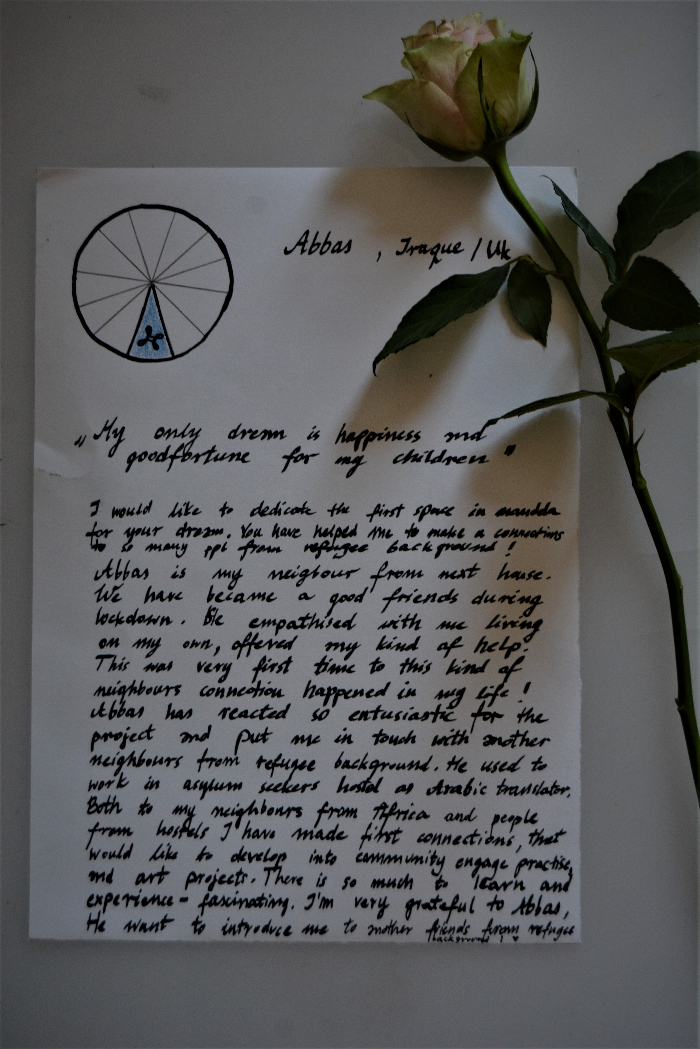 Abbas , Iraque / Uk
„ My only dream is happiness and
goodfortune for my children "
I would like to dedicate the first space in mandda
for your dream. You have helped me to make a connections
to so many ppl from refugee background !
Abbas is my neigbour from next house.
We have became a good friends during
lockdown. He empathised with me living
on my own, offered my kind of help.
This was very first time to this kind of
neighbours connection happened in my life !
Abbas has reacted so entusiastic for the
project and put me in touch with another
neighbours from refugee background. He used to
work in asylum seekers hostel as Arabic translator.
Both to my neighbours from Africa and people
from hostels I have made first connections, that
would like to develop into community engage practise,
and art projects. There is so much to learn and
experience - fascinating. I'm very grateful to Abbas,
He want to introduce me to another friends from refugee
background ! ♥